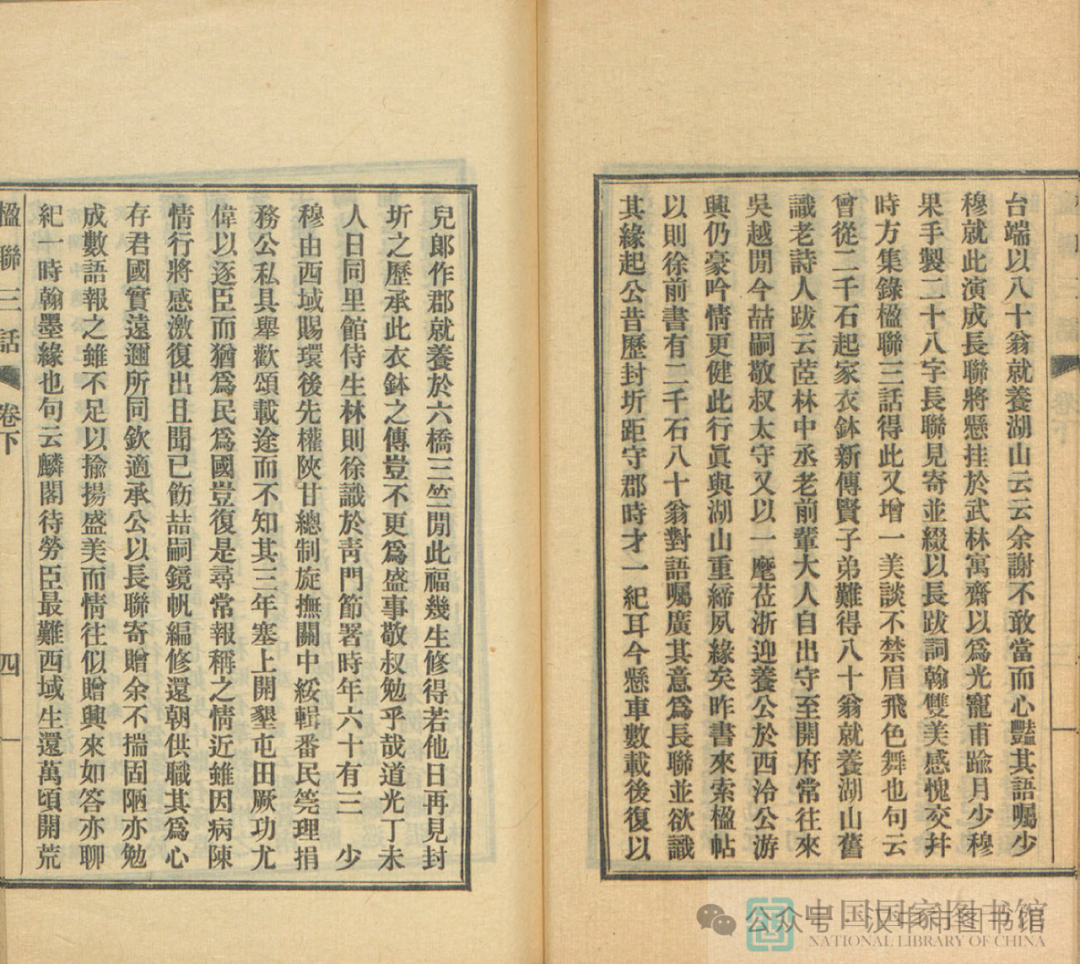 台端以八十翁就養湖山云云余謝不敢當而心豔其語囑少
穆就此演成長聯將懸挂於武林寓齋以爲光寵甫踰月少穆
果手製二十八字長聯見寄並綴以長跋詞翰雙美感愧交幷
時方集錄楹聯三話得此又增一美談不禁眉飛色舞也句云
曾從二千石起家衣鉢新傳賢子弟難得八十翁就養湖山舊
識老詩人跋云茝林中丞老前輩大人自出守至開府常往來
吳越閒今喆嗣敬叔太守又以一麾莅浙迎養公於西泠公游
興仍豪吟情更健此行眞與湖山重締夙緣矣昨書來索楹帖
以則徐前書有二千石八十翁對語囑廣其意爲長聯並欲識
其緣起公昔歷封圻距守郡時才一紀耳今懸車數載後復以
兒郞作郡就養於六橋三竺閒此福幾生修得若他日再見封
圻之歷承此衣鉢之傳豈不更爲盛事敬叔勉乎哉道光丁未
人日同里館侍生林則徐識於靑門節署時年六十有三 少
穆由西域賜環後先權陝甘總制旋撫關中綏輯番民筦理捐
務公私具舉歡頌載途而不知其三年塞上開墾屯田厥功尤
偉以逐臣而猶爲民爲國豈復是尋常報稱之情近雖因病陳
情行將感激復出且聞已飭喆嗣鏡帆編修還朝供職其爲心
存君國實遠邇所同欽適承公以長聯寄贈余不揣固陋亦勉
成數語報之雖不足以揄揚盛美而情往似贈興來如答亦聊
紀一時翰墨緣也句云麟閣待勞臣最難西域生還萬頃開荒
楹聯三話 卷下 四
公众号 · 汉中市图书馆
中国国家图书馆
NATIONAL LIBRARY OF CHINA